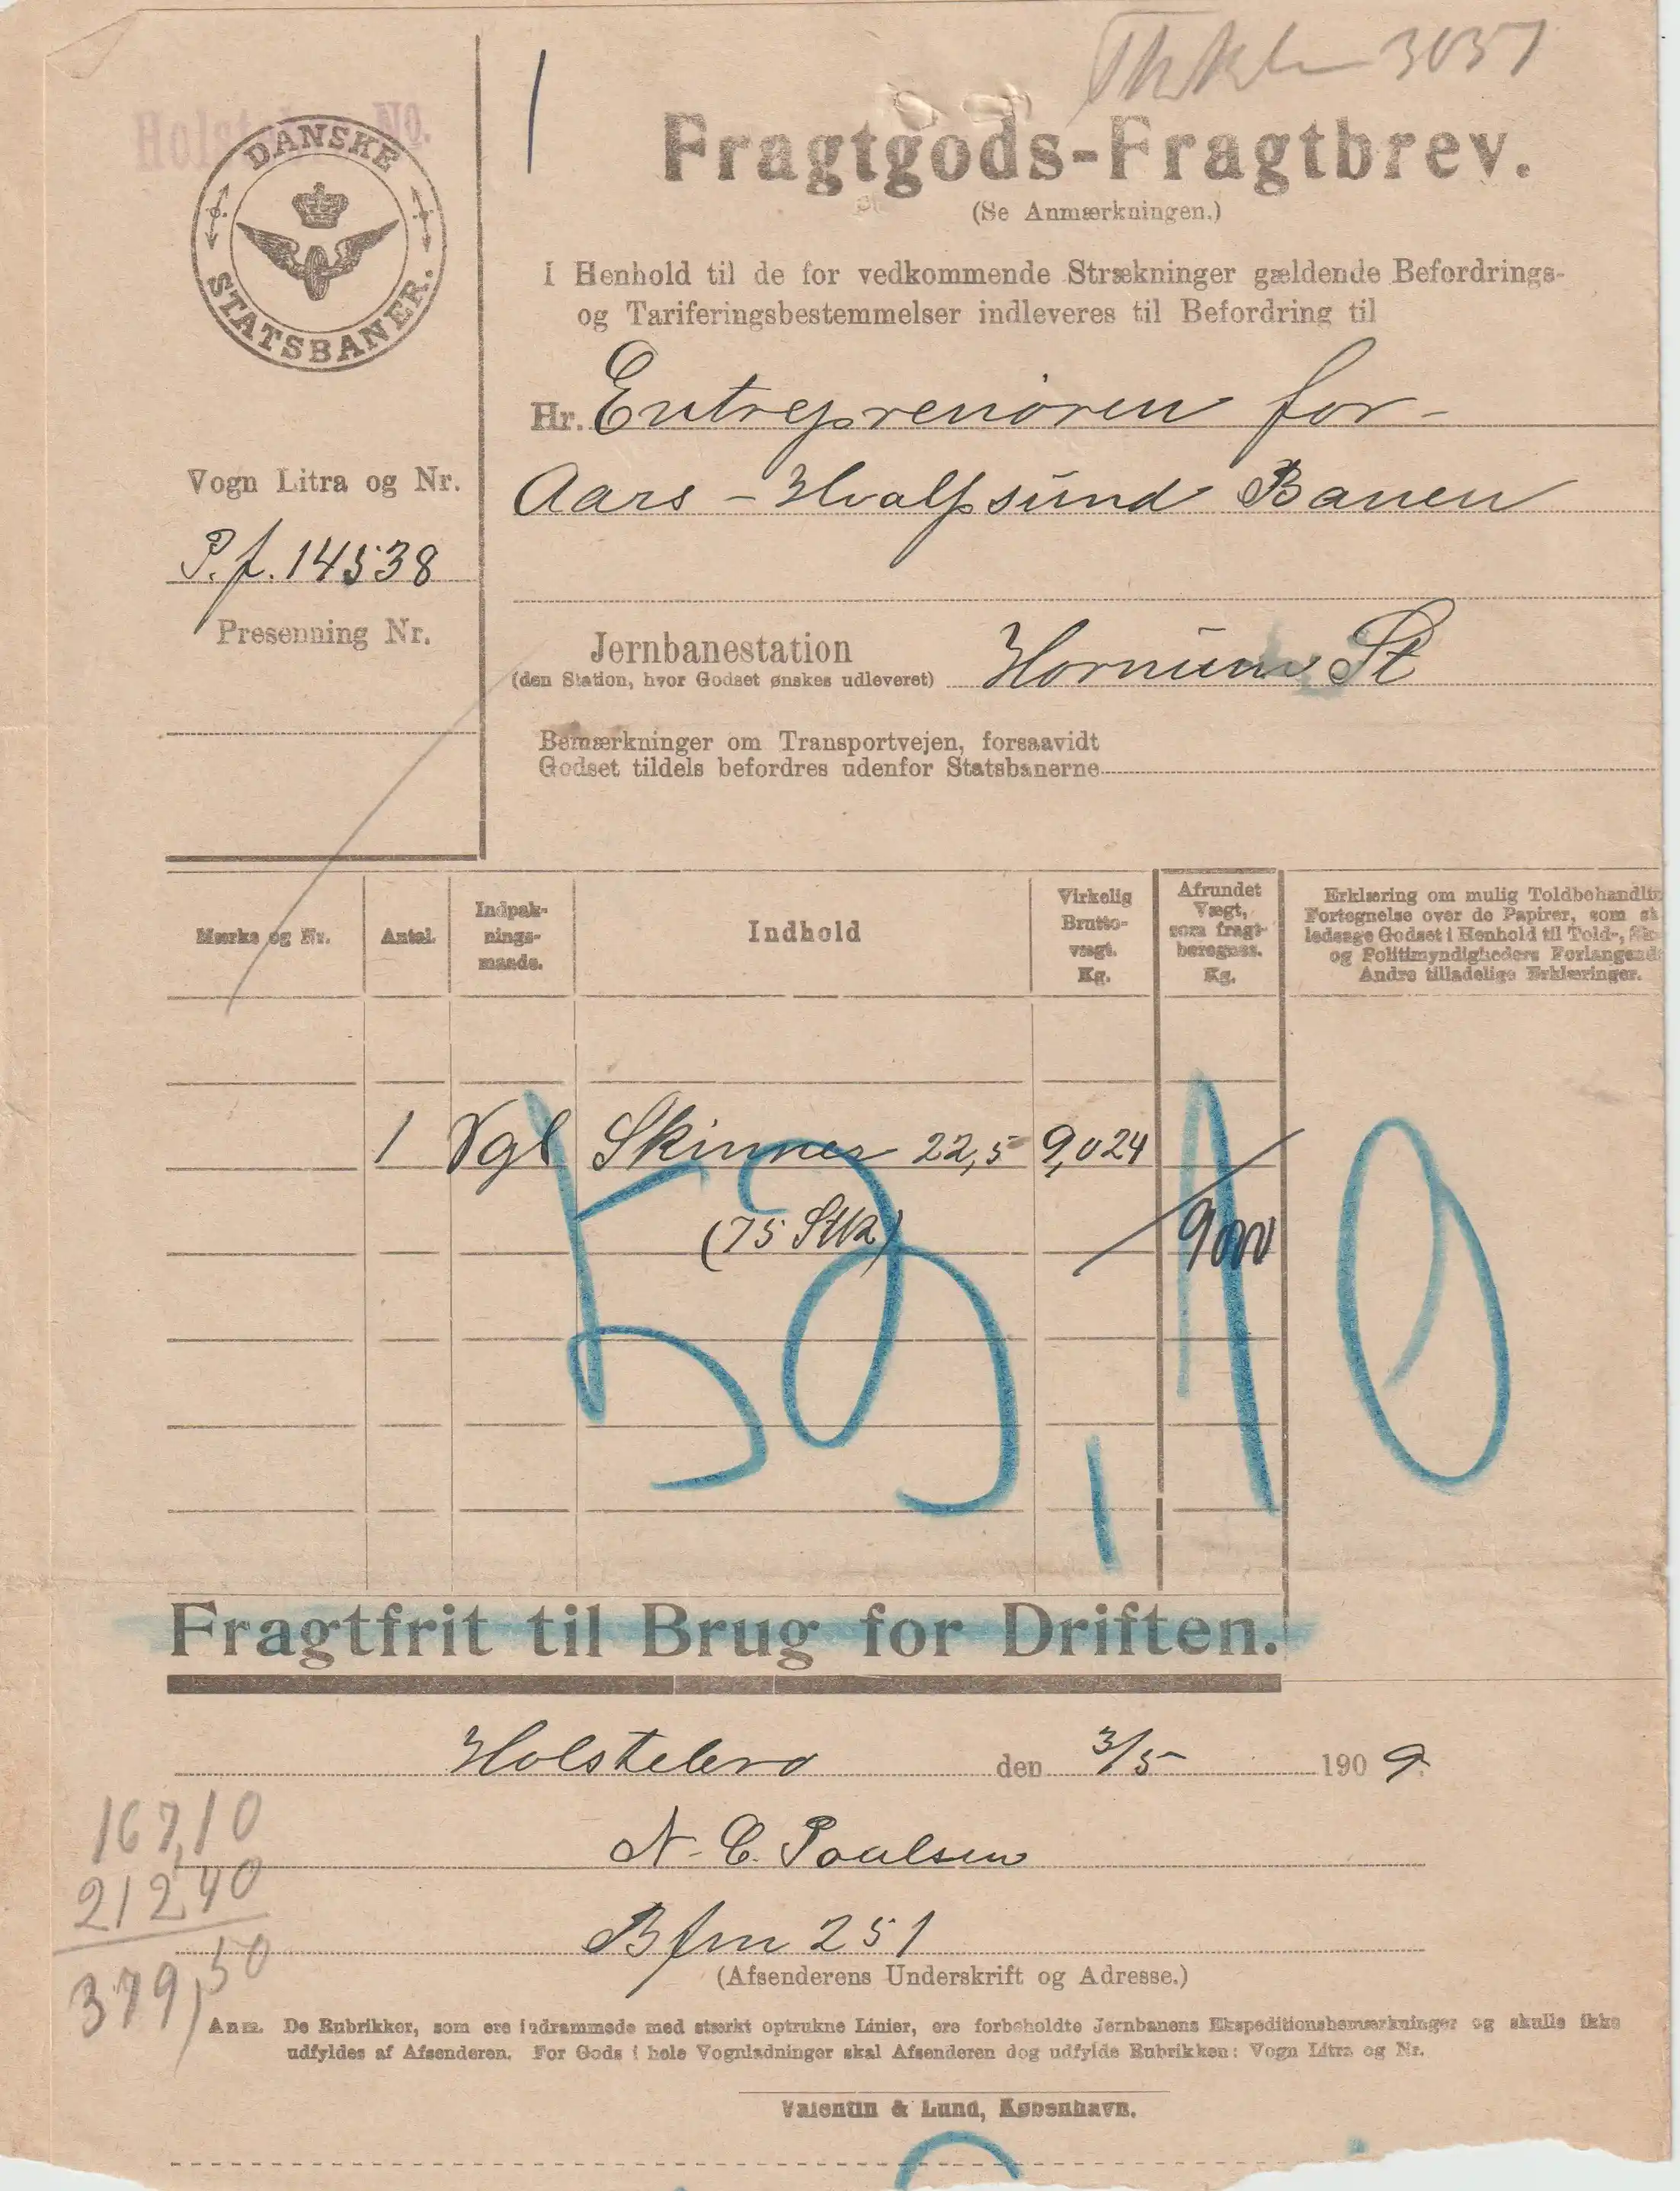 3037
Holstebro No.
DANSKE STATSBANER.
Fragtgods-Fragtbrev.
(Se Anmærkningen.)
I Henhold til de for vedkommende Strækninger gældende Befordrings-
og Tariferingsbestemmelser indleveres til Befordring til
Hr. Entreprenören for
Aars - Hvalpsund Banen
Vogn Litra og Nr.
P.f. 14538
Presenning Nr.
Jernbanestation
(den Station, hvor Godset ønskes udleveret) Hornum St
Bemærkninger om Transportvejen, forsaavidt
Godset tildels befordres udenfor Statsbanerne
Mærke og Nr.
Antal.
Indpak-
nings-
maade.
Indhold
Virkelig
Brutto-
vægt.
Kg.
Afrundet
Vægt,
som fragt-
beregnes.
Kg.
Erklæring om mulig Toldbehandlin
Fortegnelse over de Papirer, som sk
ledsage Godset i Henhold til Told-, Sk
og Politimyndigheders Forlangend
Andre tilladelige Erklæringer.
1 Vgl Skinner 22,5 9,024
(75 Stk) 9000
59,10
Fragtfrit til Brug for Driften.
Holstebro den 3/5 1909.
N. C. Poulsen
Bfm 251
(Afsenderens Underskrift og Adresse.)
167,10
212,40
379,50
Anm. De Rubrikker, som ere indrammede med stærkt optrukne Linier, ere forbeholdte Jernbanens Ekspeditionsbemærkninger og skulle ikke
udfyldes af Afsenderen. For Gods i hele Vognladninger skal Afsenderen dog udfylde Rubrikken: Vogn Litra og Nr.
Valentin & Lund, København.